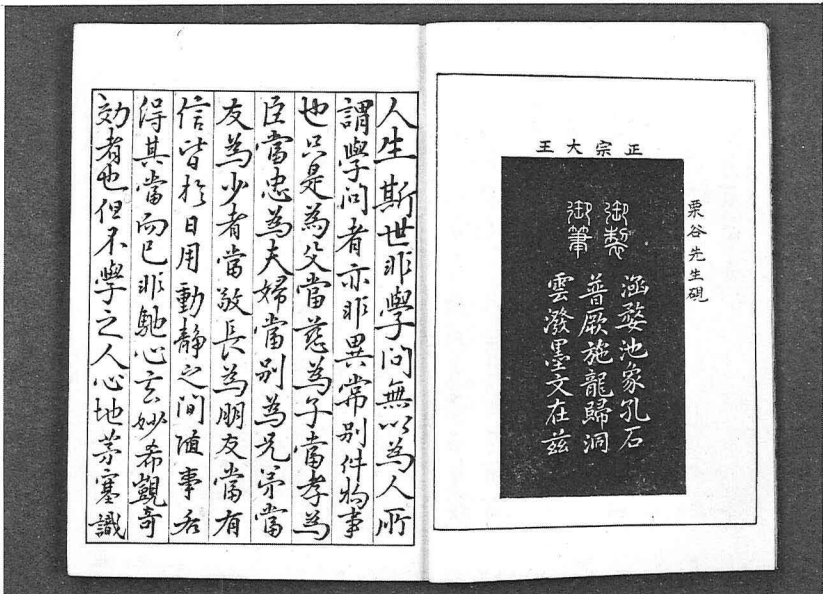 栗谷先生硯
正宗大王
御製
御筆
涵婺池象孔石
普厥施龍歸洞
雲潑墨文在茲
人生斯世非學問無以為人所
謂學問者亦非異常別件物事
也只是為父當慈為子當孝為
臣當忠為夫婦當别為兄弟當
友為少者當敬長為朋友當有
信皆於日用動靜之間随事各
得其當而已非馳心玄妙希覬奇
効者也但不學之人心地茅塞識